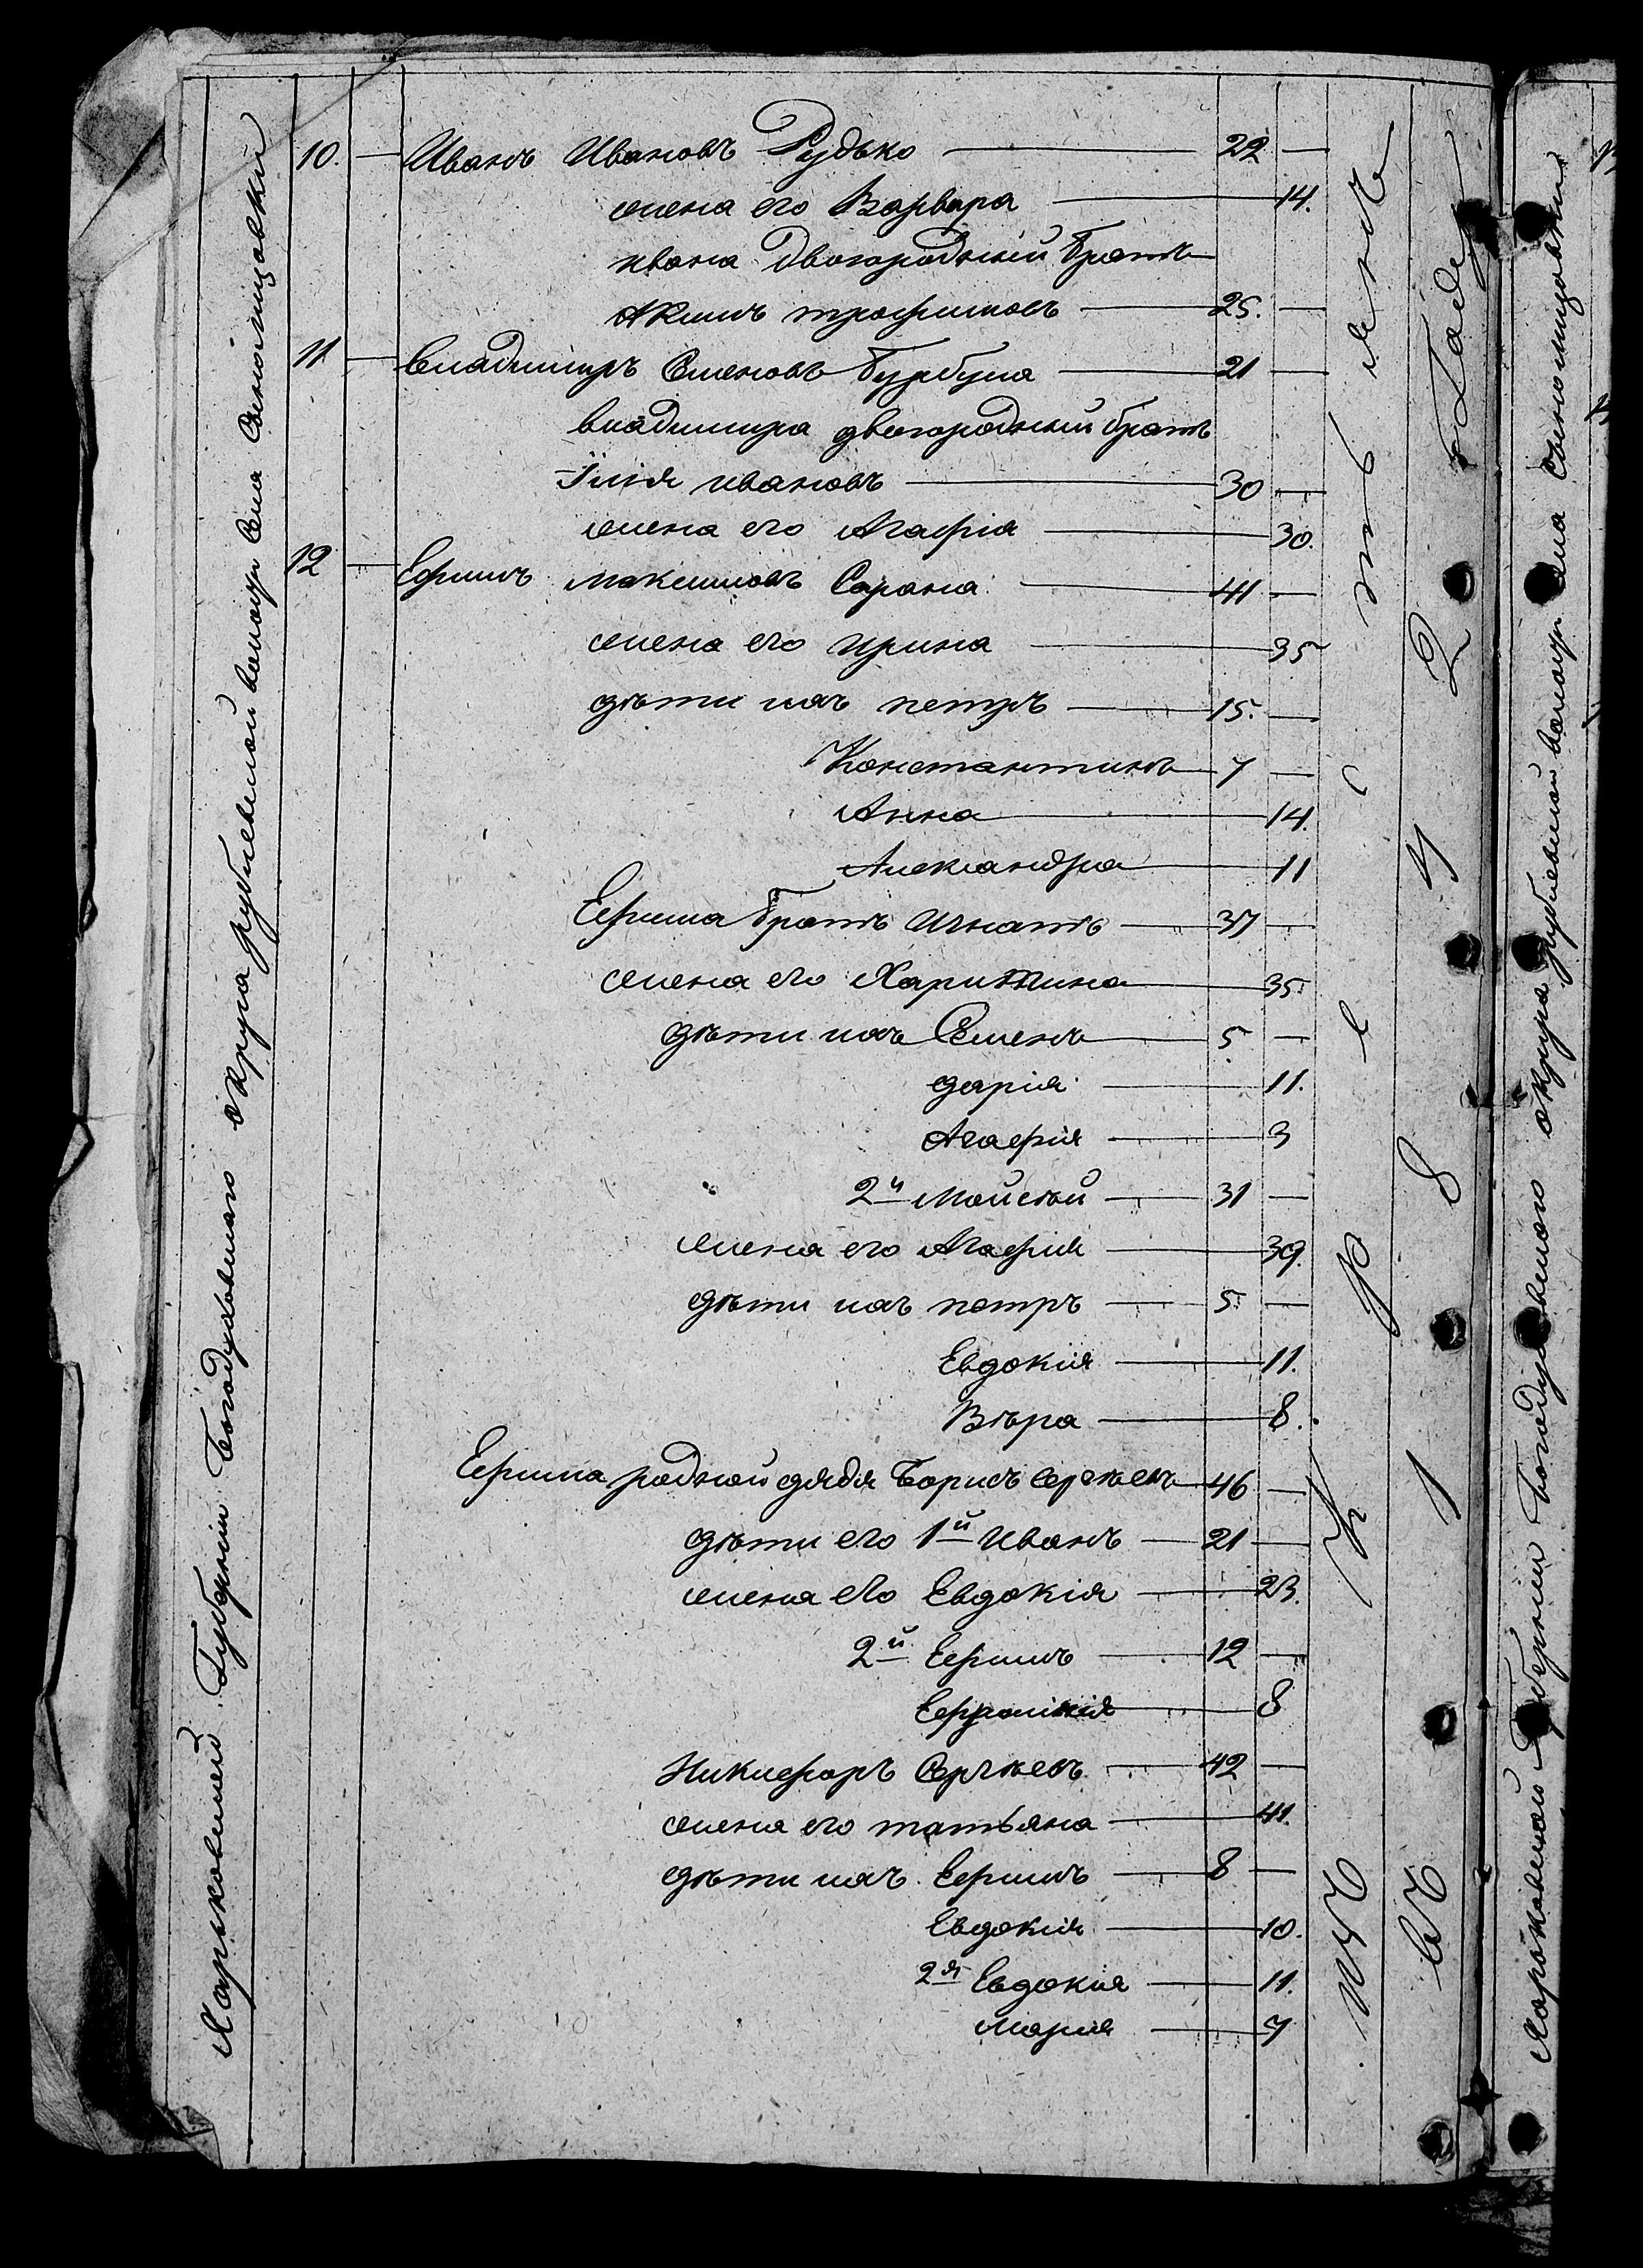 Харьковской Губерніи Богодуховскаго округа рублевской волости Села Сѣнолицовки
10. — Иванъ Ивановъ Рудько — 22 —
жена его Варвара — 14.
ивана двоюродный братъ
Акимъ трофимовъ — 25. —
11 — Владимиръ Семеновъ Бурбула — 21 —
владимира двоюродный братъ
Илія ивановъ — 30 —
жена его Агафія — 30.
12 — Ефимъ максимовъ Сарана — 41 —
жена его ирина — 35
дѣти ихъ петръ — 15. —
Константинъ — 7 —
Анна — 14.
Александра — 11
Ефима братъ Игнатъ — 37 —
жена его Харитина — 35.
дѣти ихъ Семенъ — 5 —
дарія — 11.
Агафія — 3
2й Мойсей — 31 —
жена его Агафия — 39.
дѣти ихъ петръ — 5. —
Евдокия — 11.
Вѣра — 8.
Ефима родной дядя Борисъ Сергѣевъ — 46 —
дѣти его 1й Иванъ — 21 —
жена его Евдокія — 23.
2й Ефимъ — 12 —
8
Никифоръ Сергѣевъ — 42 —
жена его татьяна — 41.
дѣти ихъ Ефимъ — 8 —
Евдокия — 10.
2я Евдокия — 11.
Мария — 7
изъ Крестьянъ
въ 1842 Году
Харьковской Губерніи Богодуховскаго округа рублевской волости Села Сѣнолицовки